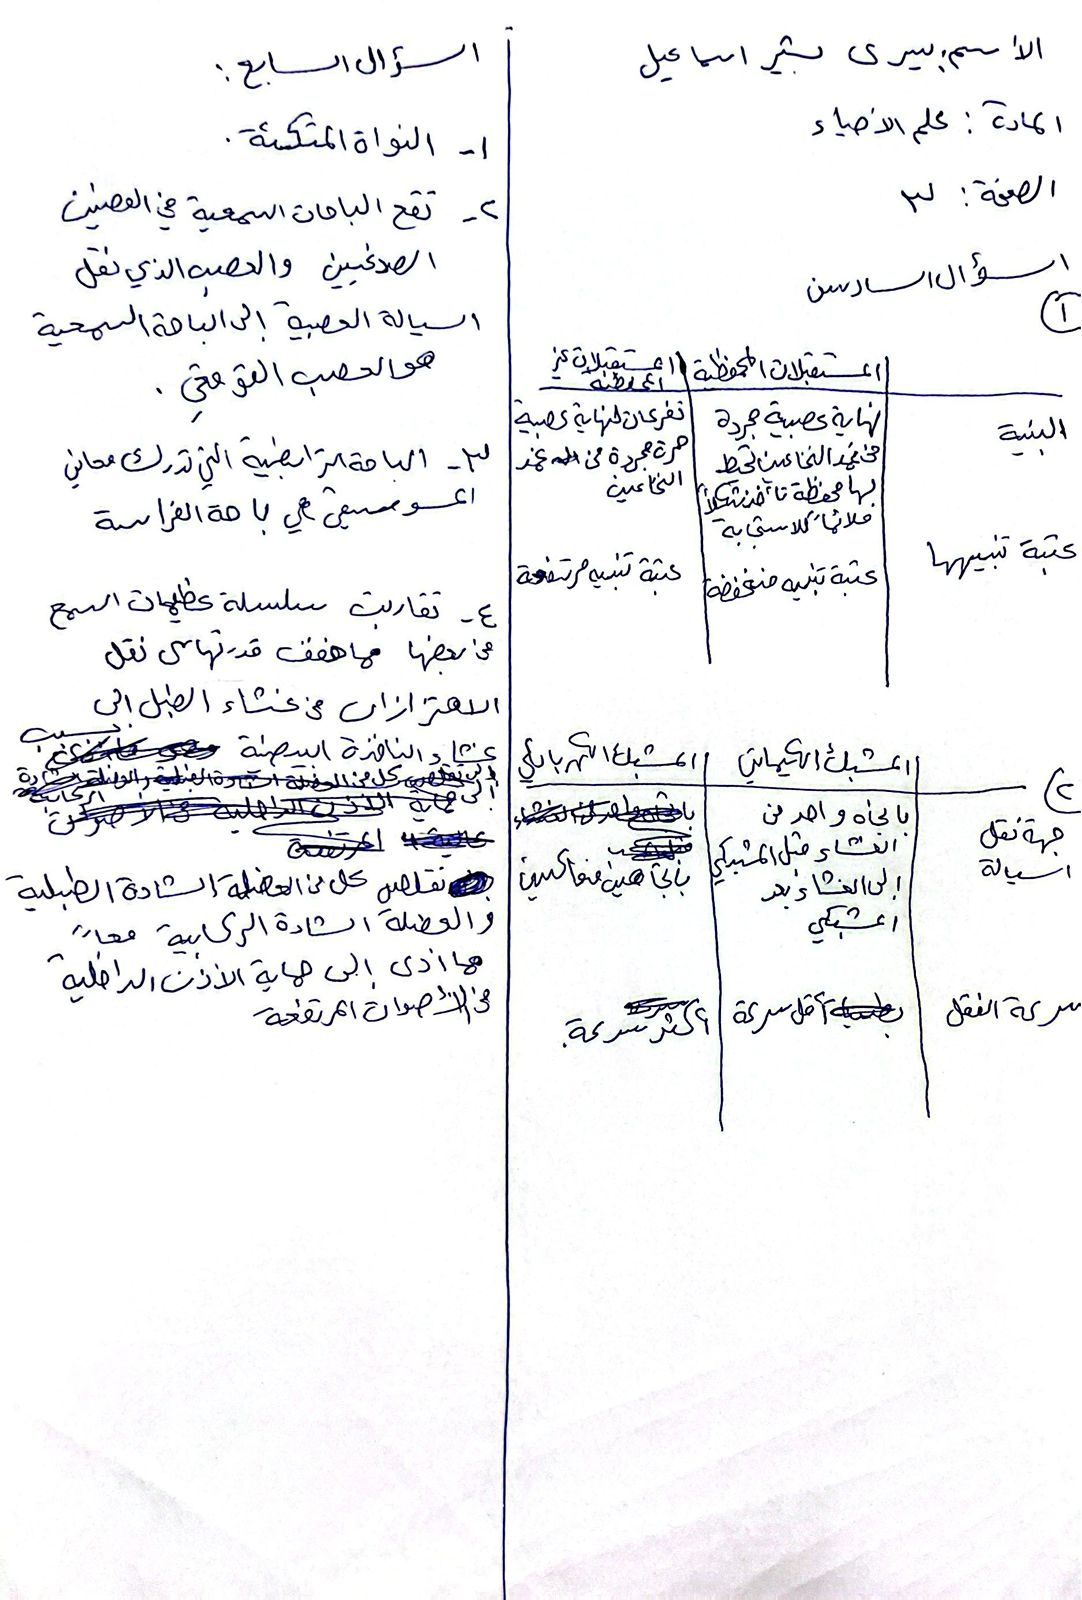 الاسم: يسرى بشير اسماعيل
المادة: علم الاحياء
الصفحة: ٣
السؤال السادس
١
المستقبلات المحفظة
المستقبلات غير المحفظة
البنية
نهاية عصبية مجردة
من غمد النخاعين تحيط
بها محفظة تأخذ شكلاً
ملائماً للاستجابة
تفرعات لنهاية عصبية
حرة مجردة من غمد
النخاعين
عتبة تنبيهها
عتبة تنبيه منخفضة
عتبة تنبيه مرتفعة
٢
المشبك الكيميائي
المشبك الكهربائي
جهة نقل
السيالة
باتجاه واحد من
الغشاء قبل المشبكي
إلى الغشاء بعد
المشبكي
باتجاهين متعاكسين
سرعة النقل
أقل سرعة
أكثر سرعة.
السؤال السابع:
١- النواة المتكئة.
٢- تقع الباحات السمعية في الفصين
الصدغيين والعصب الذي نقل
السيالة العصبية إلى الباحة السمعية
هو العصب القوقعي.
٣- الباحة الترابطية التي تدرك معاني
الموسيقى هي باحة الفراسة
٤- تقاربت سلسلة عظيمات السمع
من بعضها مما خفف قدرتها على نقل
الاهتزازات من غشاء الطبل إلى
غشاء النافذة البيضية بسبب
تقلص كل من العضلة الشادة الطبلية
والعضلة الشادة الركابية معاً
مما أدى إلى حماية الأذن الداخلية
من الأصوات المرتفعة